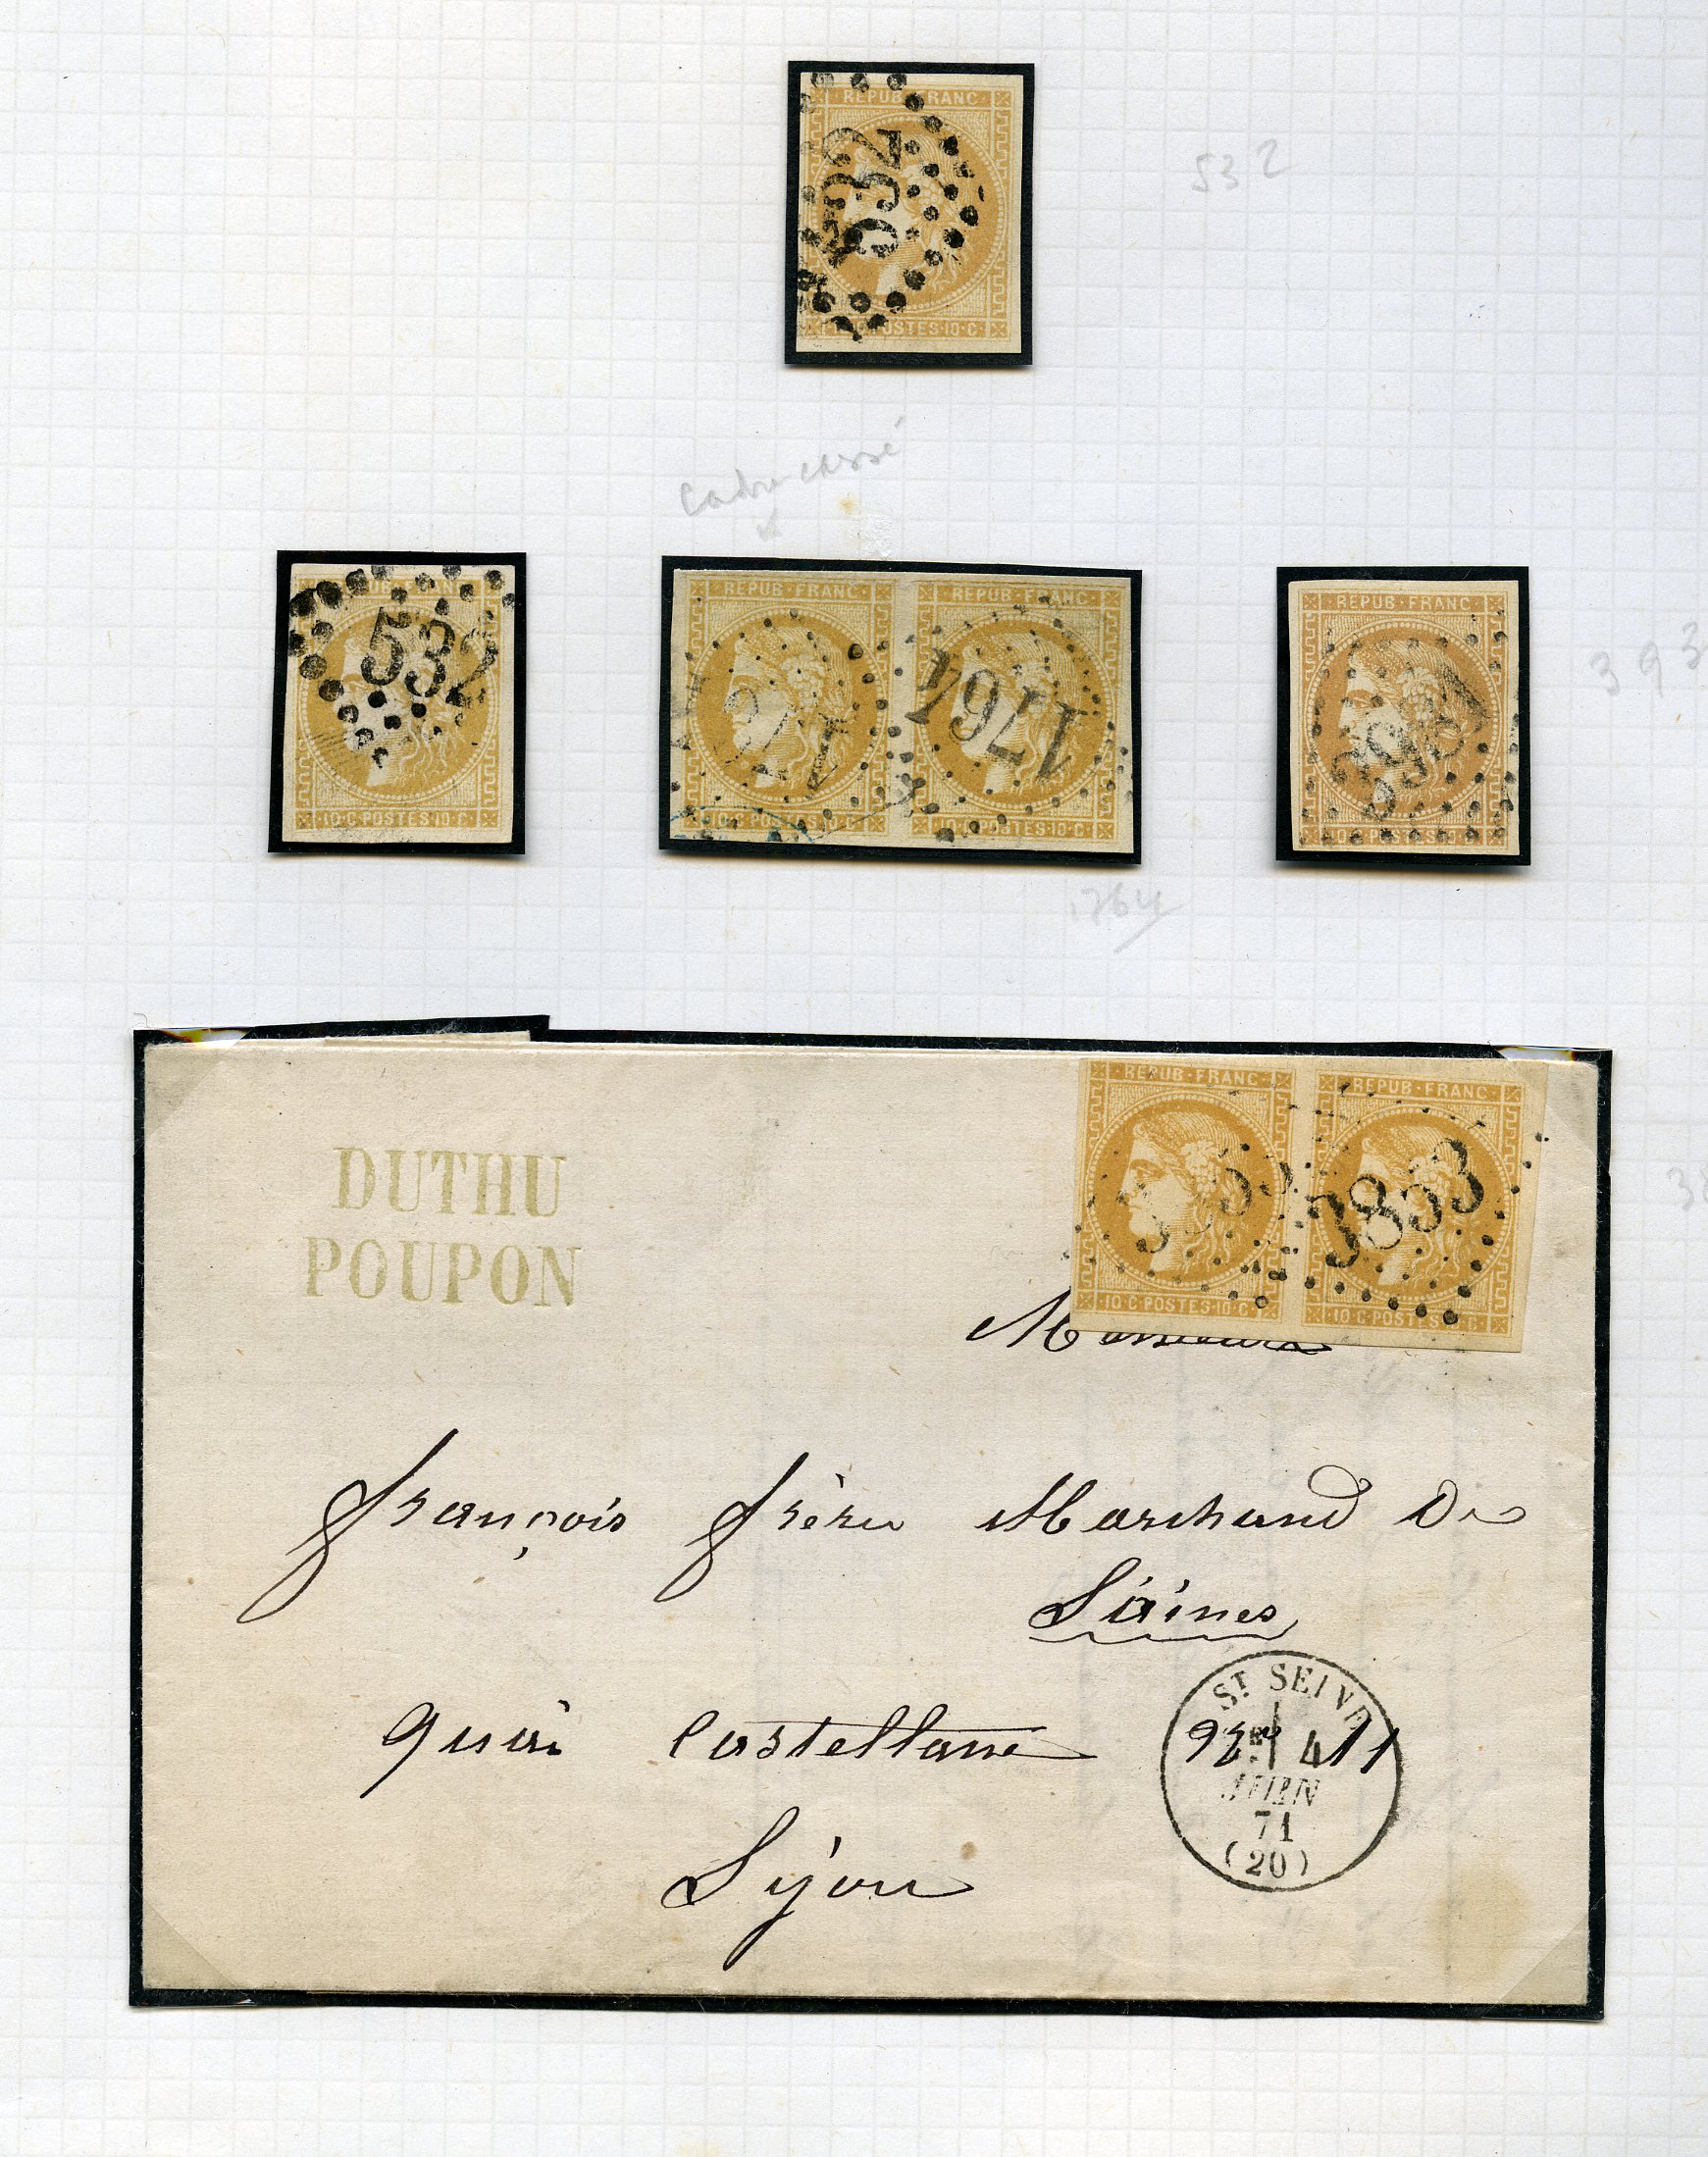 REPUB · FRANC
532
POSTES · 10 · C ·
532
cadre cassé
532
· 10 · C · POSTES · 10 · C ·
REPUB · FRANC · REPUB · FRANC ·
1764
· 10 · C · POSTES · 10 · C · 10 · C · POSTES · 10 · C ·
1764
REPUB · FRANC
· 10 · C · POSTES · 10 · C ·
393
DUTHU
POUPON
· REPUB · FRANC · REPUB · FRANC ·
3853
· 10 · C · POSTES · 10 · C · 10 · C · POSTES · 10 · C ·
Messieurs
François frères Marchand De
Laines
quai Castellane
Lyon
ST SEIVE
4
JUIN
71
(20)